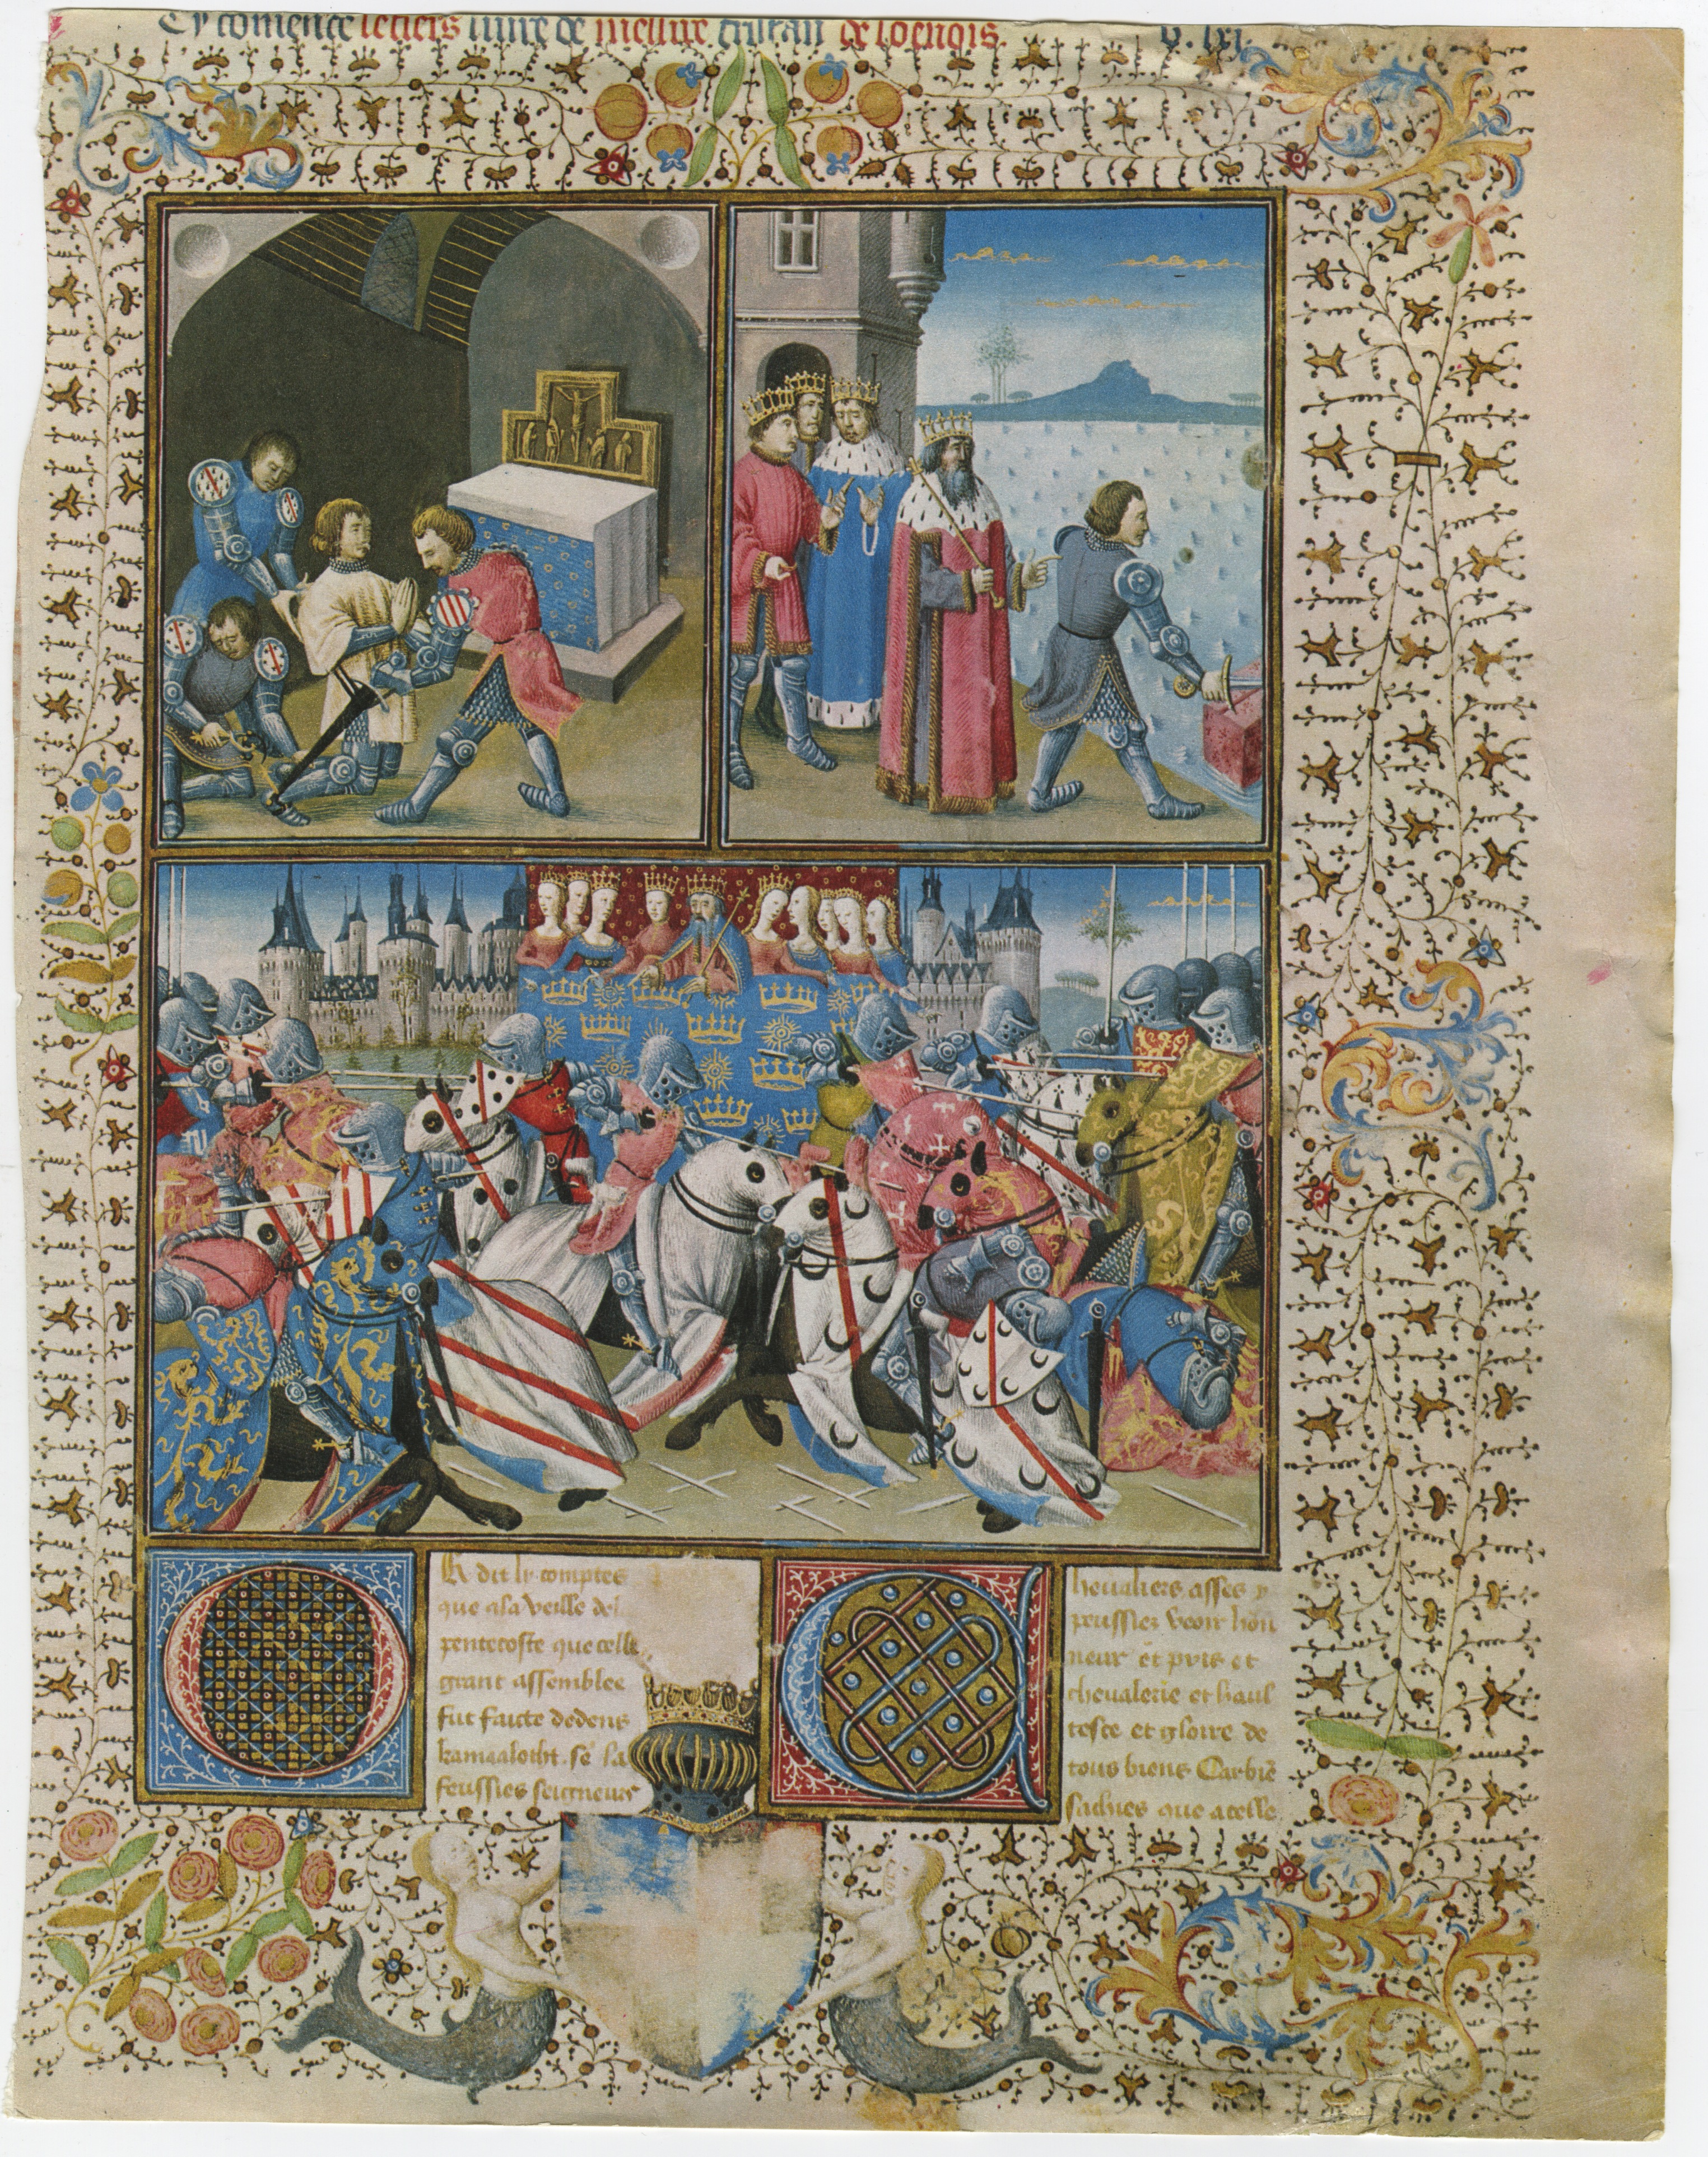 Cy comence le tiers liure de messire tristan de loenois
Or dit ly comptes
que a la veille de
pentecoste que celle
grant assemblee
fut faicte dedens
kamaaloth. se la
feussies seigneurs
Cheualiers asses y
peussies veoir hon
neur et pris et
cheualerie et haul
tesce et gloire de
tous biens Car bie
sachies que a celle